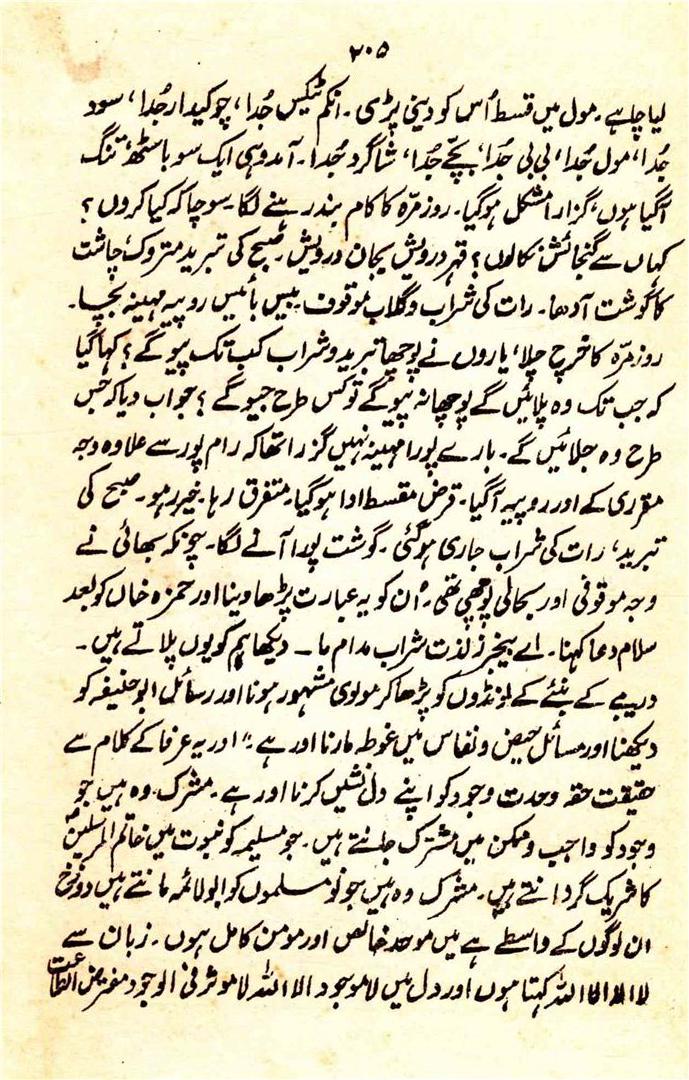 ۲۰۵
لیا چاہے۔ مول میں قسط اُس کو دینی پڑی۔ انکم ٹیکس جُدا، چوکیدار جُدا، سود
جُدا، مول جُدا، بی بی جُدا، بچّے جُدا، شاگرد جُدا۔ آمد وہی ایک سو باسٹھ، تنگ
آگیا ہوں، گزارا مشکل ہوگیا۔ روزمرّہ کا کام بند رہنے لگا۔ سوچا کہ کیا کروں؟
کہاں سے گنجائش نکالوں؟ قہر درویش بجان درویش۔ صبح کی تبرید متروک، چاشت
کا گوشت آدھا۔ رات کی شراب و گلاب موقوف۔ بیس بائیس روپیہ مہینہ بچا۔
روزمرّہ کا خرچ چلا، یاروں نے پوچھا تبرید و شراب کب تک پیو گے؟ کہا گیا
کہ جب تک وہ پلائیں گے پوچھا نہ پیو گے تو کس طرح جیو گے؟ جواب دیا کہ جس
طرح وہ جلائیں گے۔ بارے پورا مہینہ نہیں گزرا تھا کہ رام پور سے علاوہ وجہ
مقرری کے اور روپیہ آگیا۔ قرض مقسط ادا ہوگیا۔ متفرق رہا۔ خیر رہو۔ صبح کی
تبرید، رات کی شراب جاری ہوگئی۔ گوشت پورا آنے لگا۔ چونکہ بھائی نے
وجہ موقوفی اور بحالی پوچھی تھی۔ اُن کو یہ عبارت پڑھا دینا اور حمزہ خاں کو بعد
سلام دعا کہنا۔ اے بیخبر ز لذت شراب مدام ما۔ دیکھا ہم کو یوں پلاتے ہیں۔
دریبے کے بنئے کے لونڈوں کو پڑھا کر مولوی مشہور ہونا اور رسائل ابوحنیفہ کو
دیکھنا اور مسائل حیض و نفاس میں غوطہ مارنا اور ہے۔" اور یہ عرفا کے کلام سے
حقیقت حقہ وحدت وجود کو اپنے دل نشیں کرنا اور ہے۔ مشرک وہ ہیں جو
وجود کو واجب و ممکن میں مشترک جانتے ہیں۔ جو مسلیمہ کو نبوت میں خاتم المرسلینؐ
کا شریک گردانتے ہیں۔ مشرک وہ ہیں جو نو مسلموں کو ابوالائمہ مانتے ہیں دوزخ
ان لوگوں کے واسطے ہے میں موحد خالص اور مومن کامل ہوں۔ زبان سے
لا الہ الا اللہ کہتا ہوں اور دل میں لا موجود الا اللہ لا موثر فی الوجود مفترض الطاعت